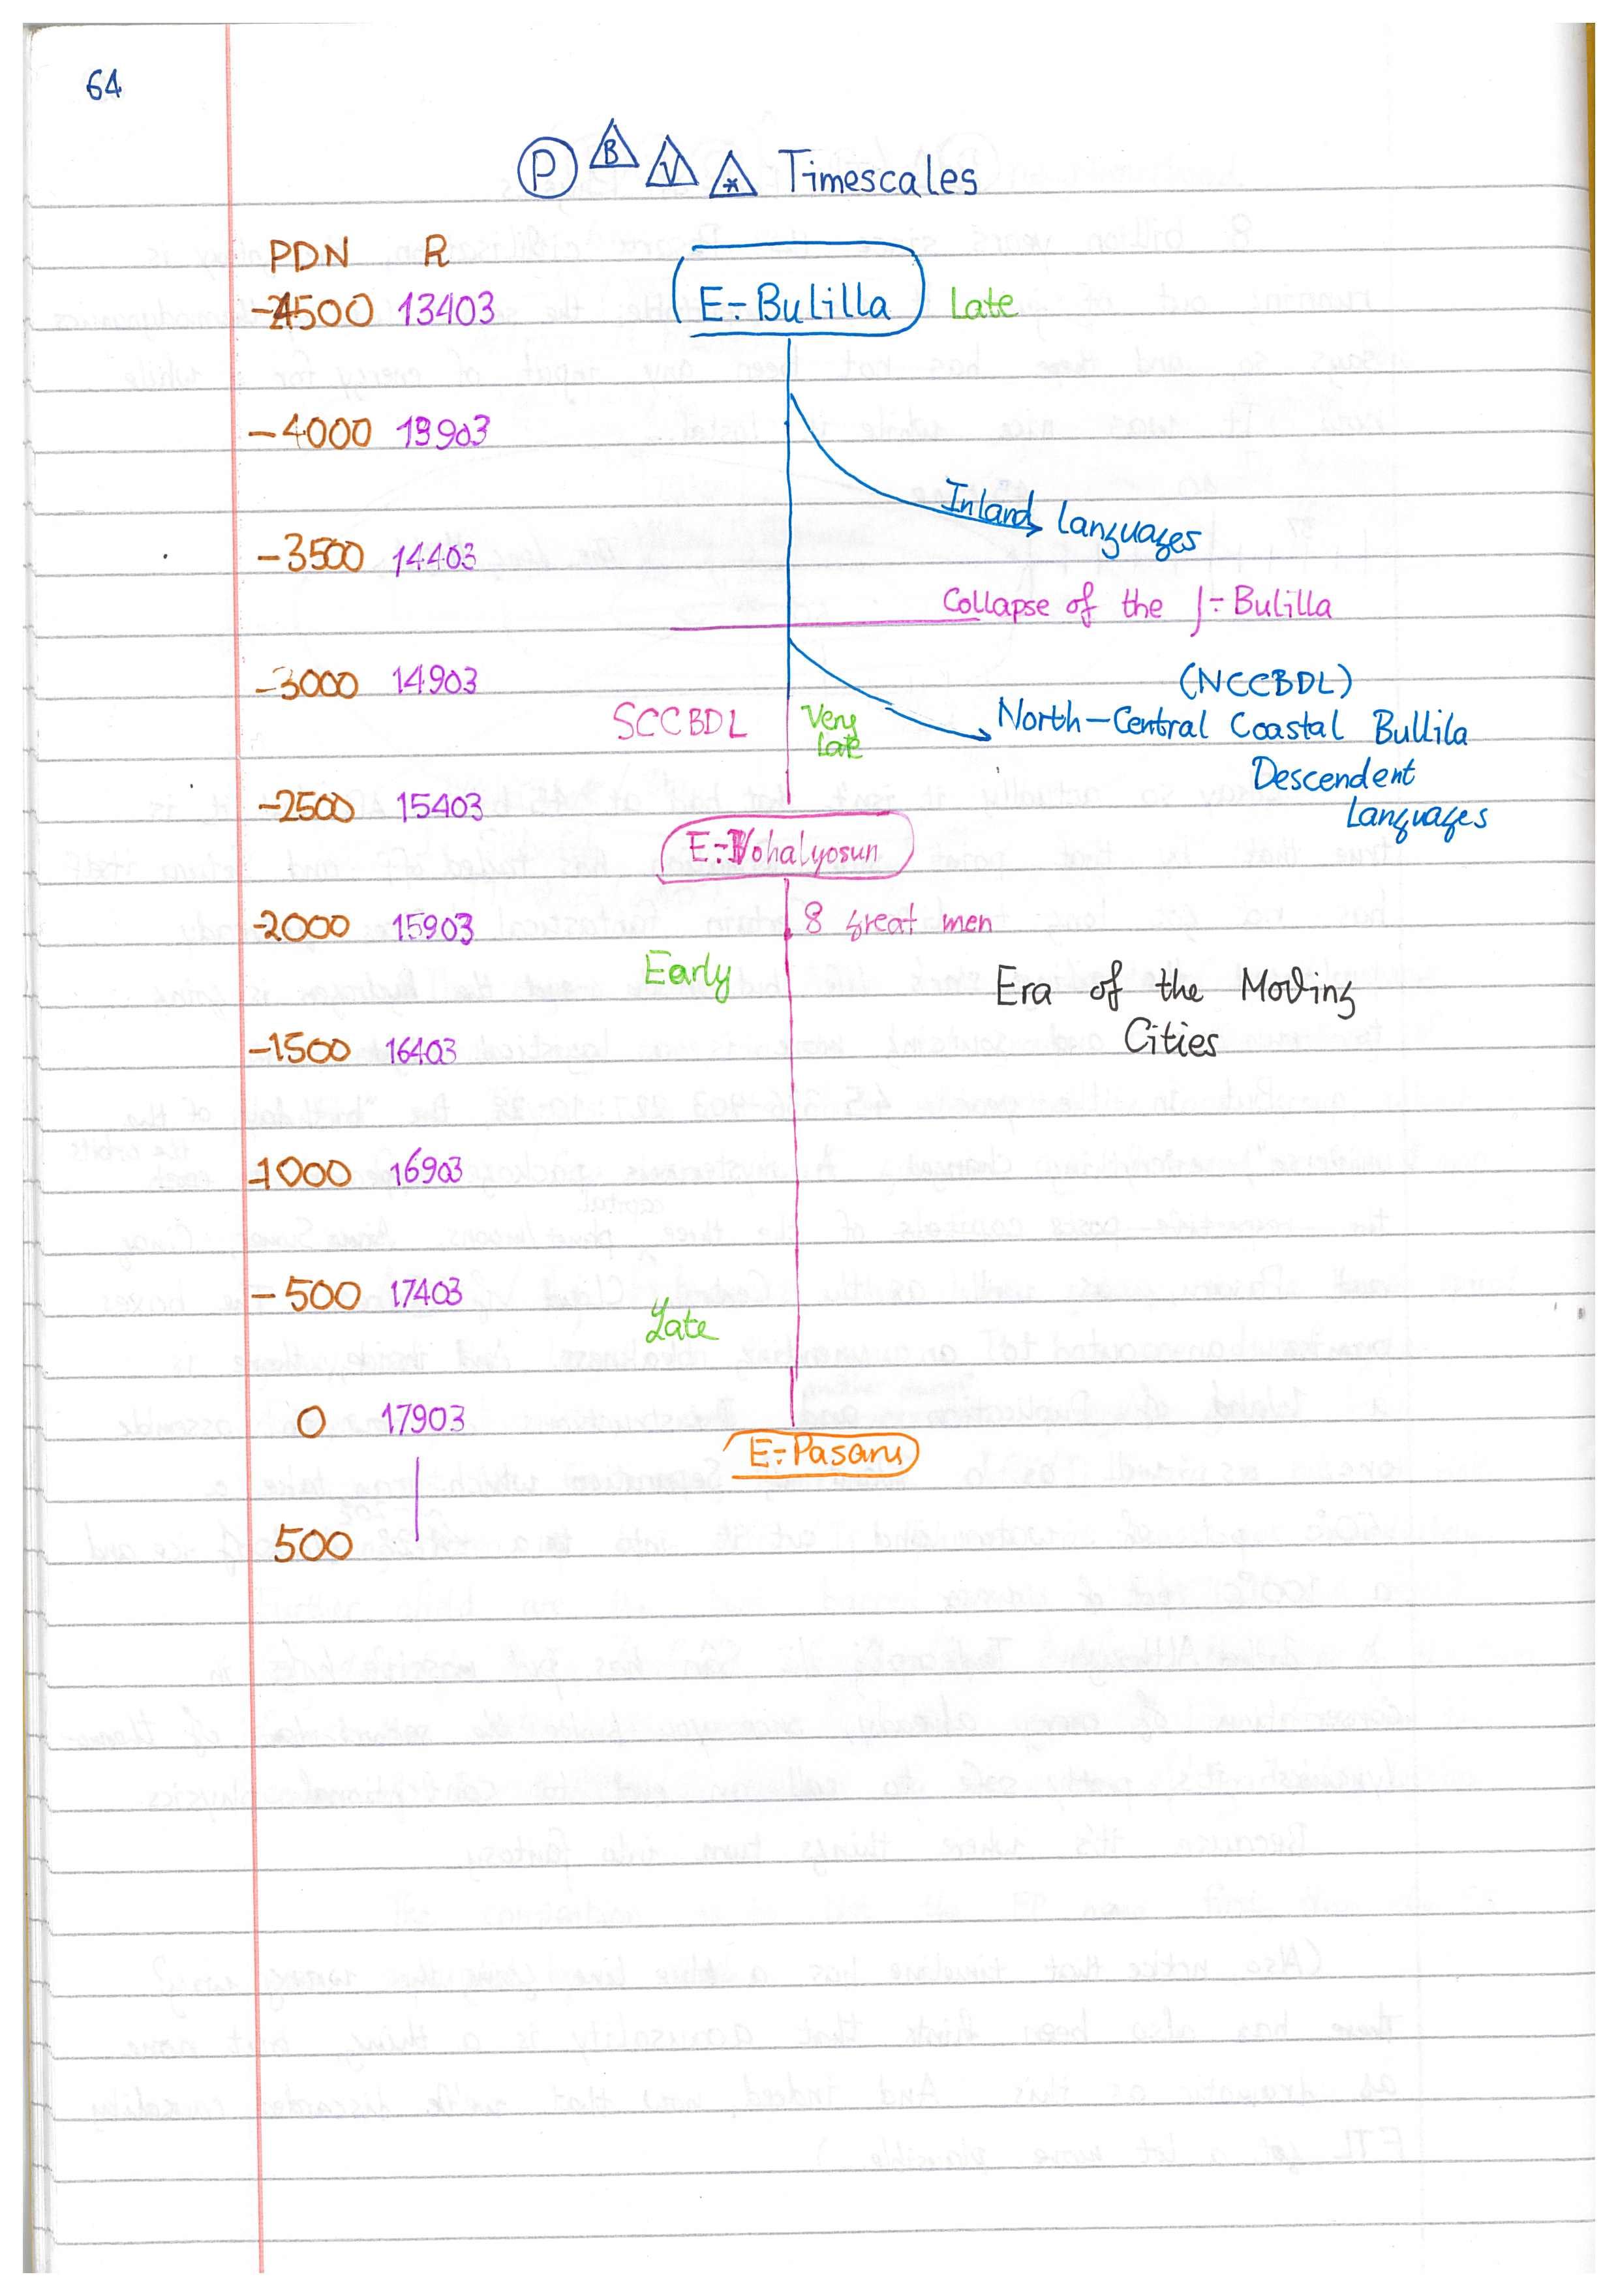 64
P B V * Timescales
PDN R
-4500 13403 E:-Bulilla Late
-4000 13903
Inland Languages
-3500 14403
Collapse of the J:-Bulilla
-3000 14903 (NCCBDL)
SCCBDL Very Late North-Central Coastal Bullila
Descendent
-2500 15403 Languages
E:-Vohalyosun
-2000 15903 8 great men
Early Era of the Moving
-1500 16403 Cities
-1000 16903
-500 17403
Late
0 17903
E:-Pasaru
500